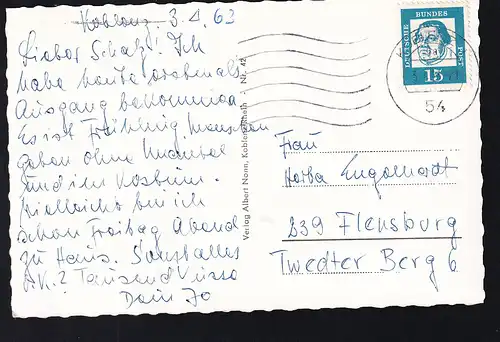 Koblenz 3.4.63
Lieber Schatz! Ich
habe heute erstmals
Ausgang bekommen
Es ist Frühling, Menschen
gehen ohne Mantel
und im Kostüm.
Vielleicht bin ich
schon Freitag Abend
zu Haus. Sonst alles
O.K.? Tausend Küsse
Dein Jo
Verlag Albert Nonn, Koblenz - Nr. 42
DEUTSCHE BUNDESPOST
15
54
Frau
Engelhardt
239 Flensburg
Twedter Berg 6